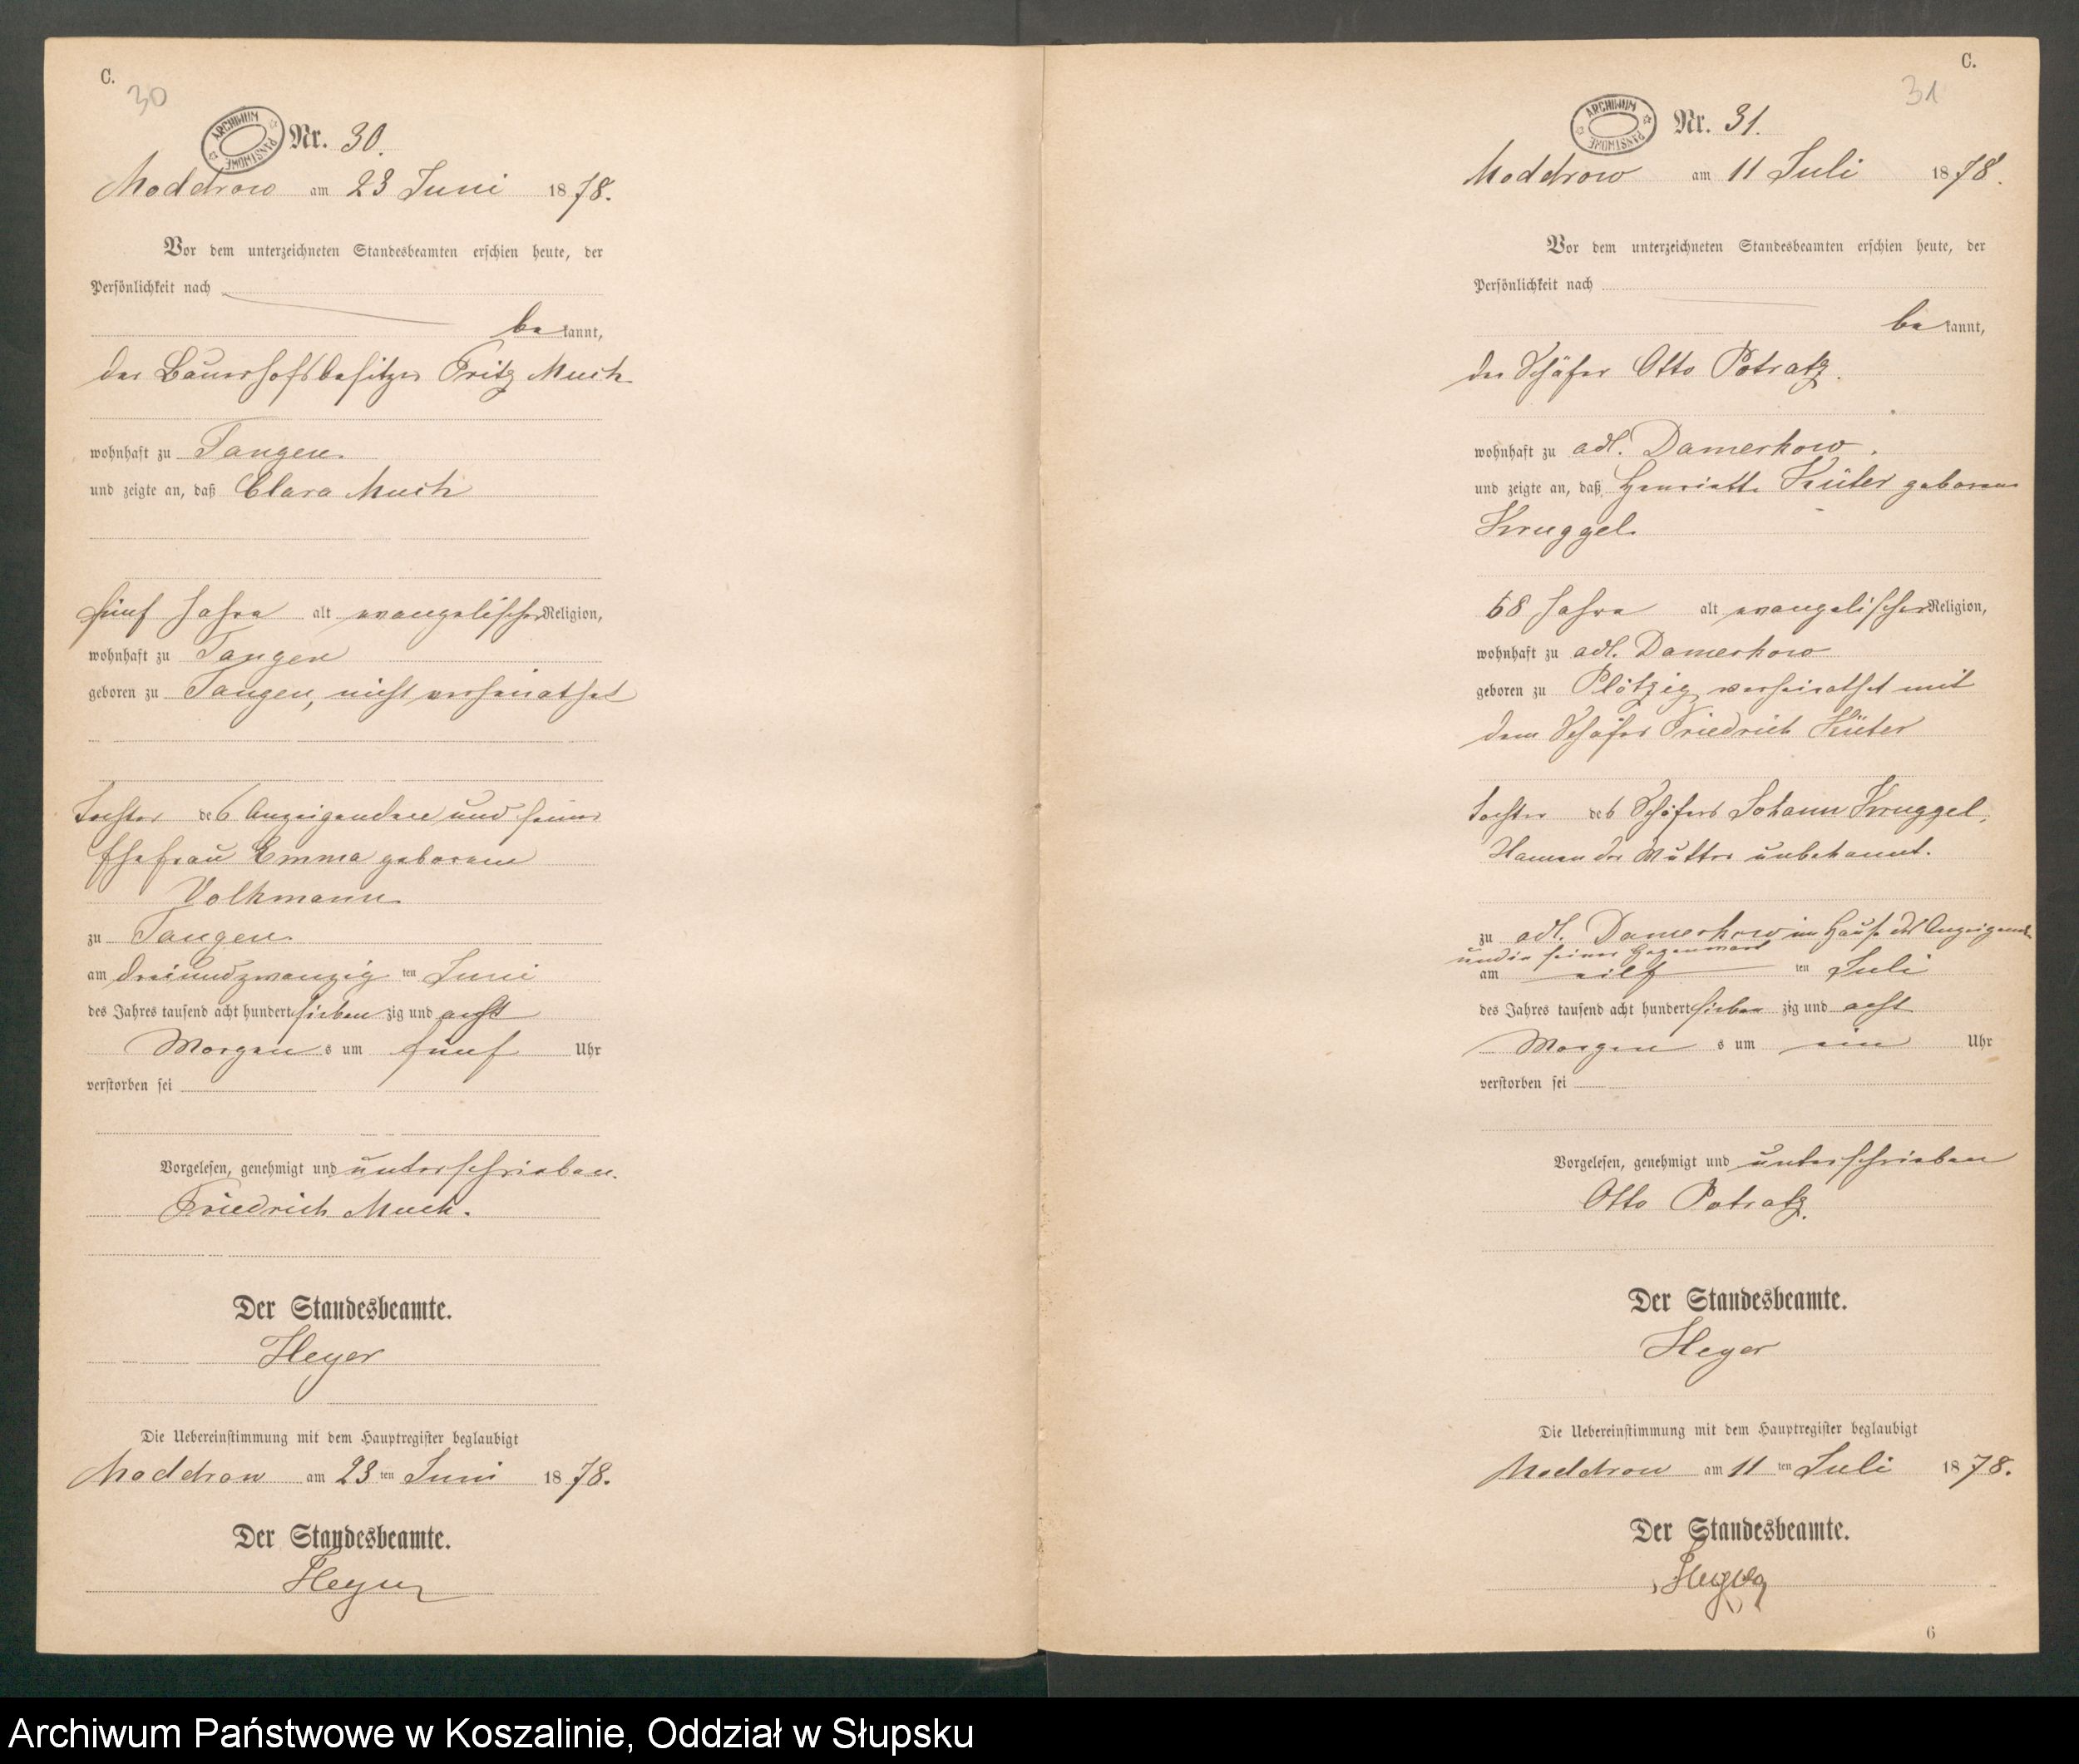 C.
30
ARCHIWUM PAŃSTWOWE
Nr. 30.
Moddrow am 23 Juni 1878.
Vor dem unterzeichneten Standesbeamten erschien heute, der
Persönlichkeit nach
be kannt,
der Bauerhofsbesitzer Fritz Much
wohnhaft zu Tangen
und zeigte an, daß Clara Much
fünf Jahre alt evangelischer Religion,
wohnhaft zu Tangen
geboren zu Tangen, nicht verheirathet
Tochter des Anzeigenden und seiner
Ehefrau Emma geborene
Volkmann
zu Tangen
am dreiundzwanzig ten Juni
des Jahres tausend acht hundert sieben zig und acht
Morgen s um fünf Uhr
verstorben sei
Vorgelesen, genehmigt und unterschrieben.
Friedrich Much.
Der Standesbeamte.
Heyer
Die Uebereinstimmung mit dem Hauptregister beglaubigt
Moddrow am 23 ten Juni 1878.
Der Standesbeamte.
Heyer
C.
31
ARCHIWUM PAŃSTWOWE
Nr. 31.
Moddrow am 11 Juli 1878.
Vor dem unterzeichneten Standesbeamten erschien heute, der
Persönlichkeit nach
be kannt,
der Schäfer Otto Potratz.
wohnhaft zu adl. Damerkow.
und zeigte an, daß Henriette Küter geborene
Kruggel
68 Jahre alt evangelischer Religion,
wohnhaft zu adl. Damerkow
geboren zu Plötzig verheirathet mit
dem Schäfer Friedrich Küter
Tochter des Schäfers Johann Kruggel,
Namen der Mutter unbekannt.
zu adl. Damerkow im Hause des Anzeigenden
und in seiner Gegenwart
am eilf ten Juli
des Jahres tausend acht hundert sieben zig und acht
Morgen s um ein Uhr
verstorben sei
Vorgelesen, genehmigt und unterschrieben
Otto Potratz.
Der Standesbeamte.
Heyer
Die Uebereinstimmung mit dem Hauptregister beglaubigt
Moddrow am 11 ten Juli 1878.
Der Standesbeamte.
Heyer
6
Archiwum Państwowe w Koszalinie, Oddział w Słupsku